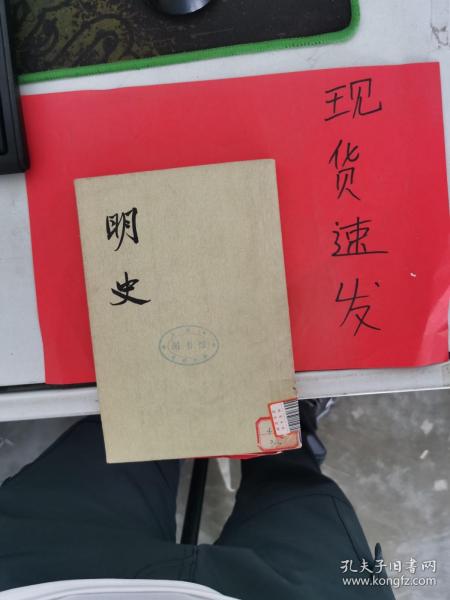 现货速发
明史
图书馆
孔夫子旧书网
www.kongfz.com